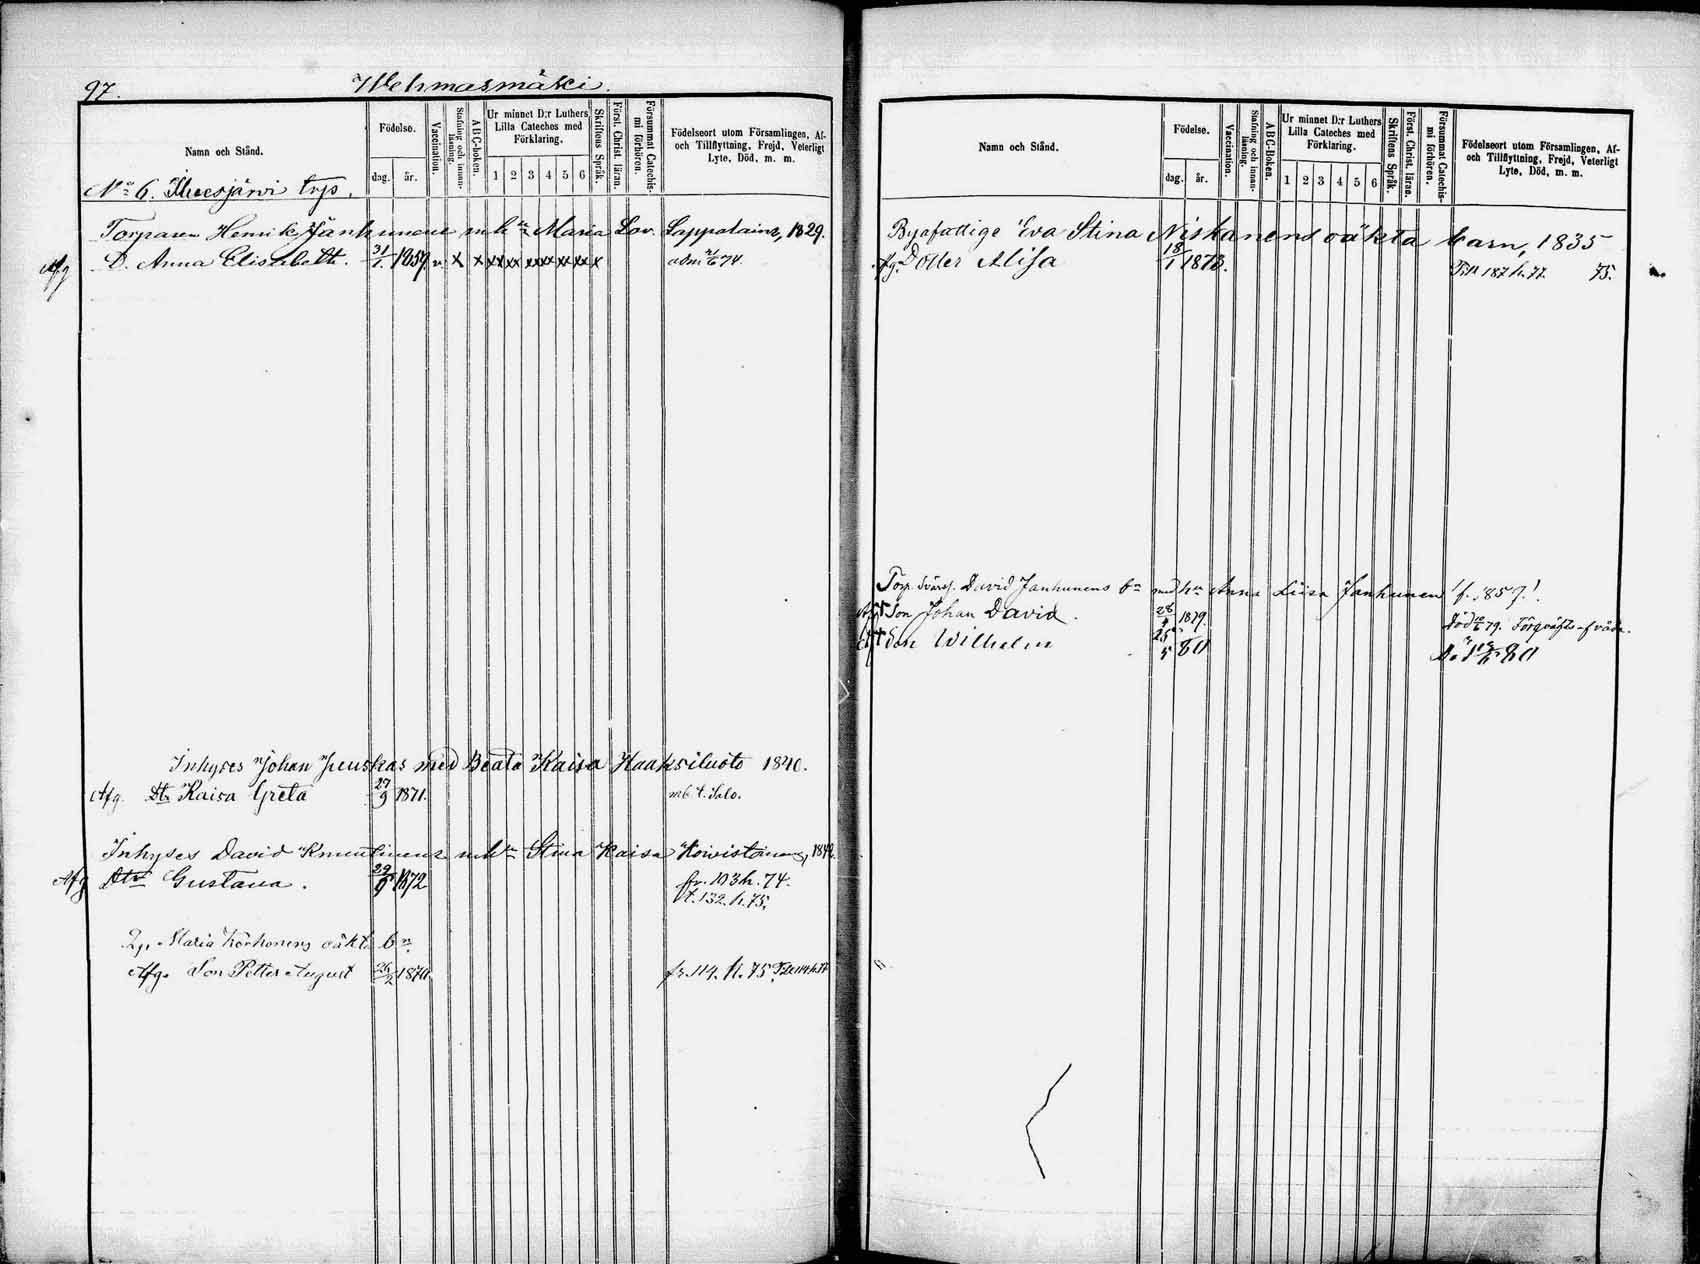 97.
Wehmasmäki.
Namn och Stånd.
Födelse.
dag. år.
Vaccination.
Stafning och innanläsning.
ABC-boken.
Ur minnet D:r Luthers Lilla Cateches med Förklaring.
1 2 3 4 5 6
Skriftens Språk.
Först. Christ. läran.
Försummat Catechismi förhören.
Födelseort utom Församlingen, Af- och Tillflyttning, Frejd, Veterligt Lyte, Död, m. m.
No 6. trp.
Torparen Henrik Janhunens m h Maria Lov. Lappalainens, 1829.
Afg D. Anna Elisabeth. 31/1. 1859. v. x x xx xx xxxx xx xx x adm 74.
Inhyses Johan med Beata Kaisa Haaksiluoto 1840.
Afg. Dtr Kaisa Greta 27/9 1871. mb. t. Salo.
Inhyses David m h Stina Kaisa Koivistoinens, 184
Afg Dtr Gustava. 29/9 1872 fr. 103 h. 74.
t. 132. h. 75.
Maria Korhonens oäkt. bn.
Afg. Son Petter August 26/2 1870. fr. 114. h. 75.
Namn och Stånd.
Födelse.
dag. år.
Vaccination.
Stafning och innanläsning.
ABC-Boken.
Ur minnet D:r Luthers Lilla Cateches med Förklaring.
1 2 3 4 5 6
Skriftens Språk.
Först. Christ. läran.
Försummat Catechismi förhören.
Födelseort utom Församlingen, Af- och Tillflyttning, Frejd, Veterligt Lyte, Död, m. m.
Byafattige Eva Stina Niskanens oäkta barn, 1835
Afg. Dotter Alisa 18/1 1873. Till 187 h. 77. 75.
Torp. Svärs. David Janhunens bn med hu Anna Liisa Janhunen f. 1859.
Son Johan David. 28/ 1879. Död 79.
Son Wilhelm 25/5 80 Död 80